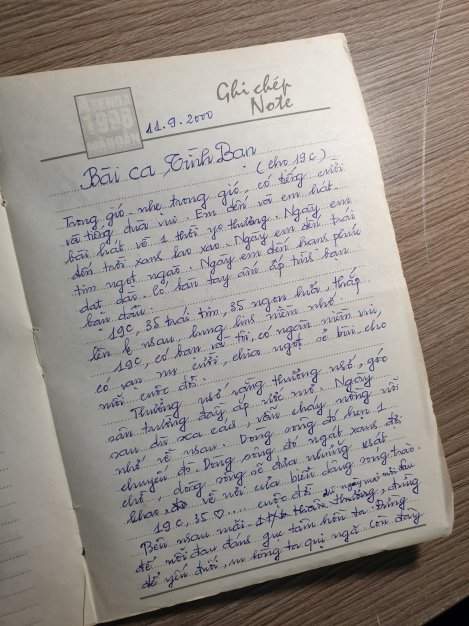 AGENDA
1998
Ghi chép
Note
11.9.2000
Bài ca Tình Bạn
(cho 19c)
Trong gió nhẹ, trong gió, có tiếng cười
và tiếng đùa vui. Em đến với em hát
bài hát về 1 thời yêu thương. Ngày em
đến trời xanh lao xao. Ngày em đến trái
tim ngọt ngào. Ngày em đến hạnh phúc
dạt dào. Có bàn tay ấm áp tình bạn
ban đầu.
19c, 35 trái tim, 35 ngọn lửa, thắp
lên nhau, lung linh niềm nhớ.
19c, có bạn và tôi, có ngàn niềm vui,
có vạn nụ cười, chia ngọt sẻ bùi cho
nhau cuộc đời.
Thương nhớ vầng thương nhớ, góc
sân trường đầy ắp ước mơ. Ngày
sau dù xa cách, vẫn cháy nồng nỗi
nhớ về nhau. Dòng sông đó hẹn 1
chuyến đò. Dòng sông đó ngát xanh đôi
chờ, dòng sông sẽ đưa những khát
khao, về với cửa biển dâng sóng trào.
19c, 35 ♡..... cuộc đời dù ngày mai nỗi đau
Bên nhau mãi thân thương, đừng
để nỗi đau đánh gục tâm hồn ta. Đừng
để yếu đuối, sống ta quị ngã. Còn đây